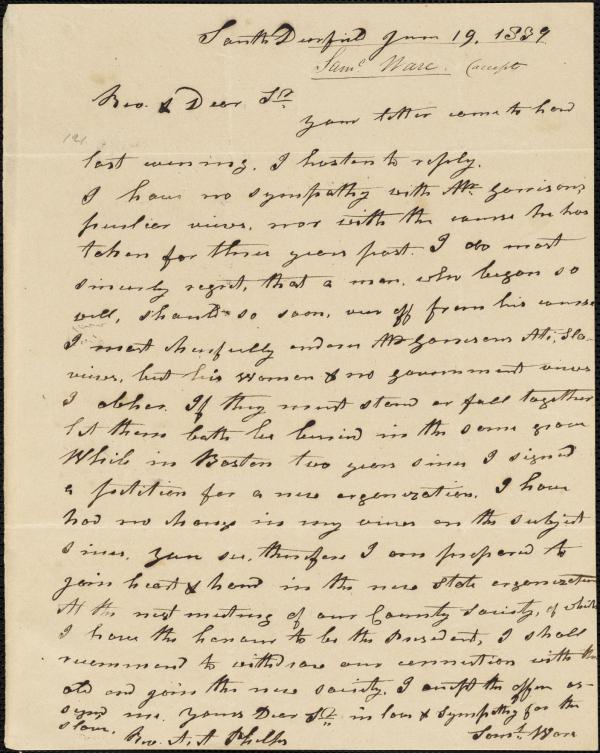 South Deerfield June 19. 1839
Saml Ware. (accepts
Rev. & Dear Sr
your letter came to hand
121
last evening. I hasten to reply.
I have no sympathy with Mr Garrison's
peculiar views, nor with the course he has
taken for three years past. I do most
sincerely regret, that a man, who began so
well, should so soon, veer off from his course
I most cheerfully endorse Mr Garrisons Ati, Sla-
views, but his women & no government views
I abhor. If they must stand or fall together
let them both be buried in the same grave
While in Boston two years since I signed
a petition for a new organization. I have
had no change in my views on the subject
since. you see, therefore I am prepared to
join heart & hand in the new state organization
At the next meeting of our County Society, of which
I have the honour to be the President, I shall
recommend to withdraw our connection with the
old and join the new society. I accept the office as-
signd me. yours Dear Sr in love & sympathy for the
slave.
Rev. A. A Phelps Saml. Ware